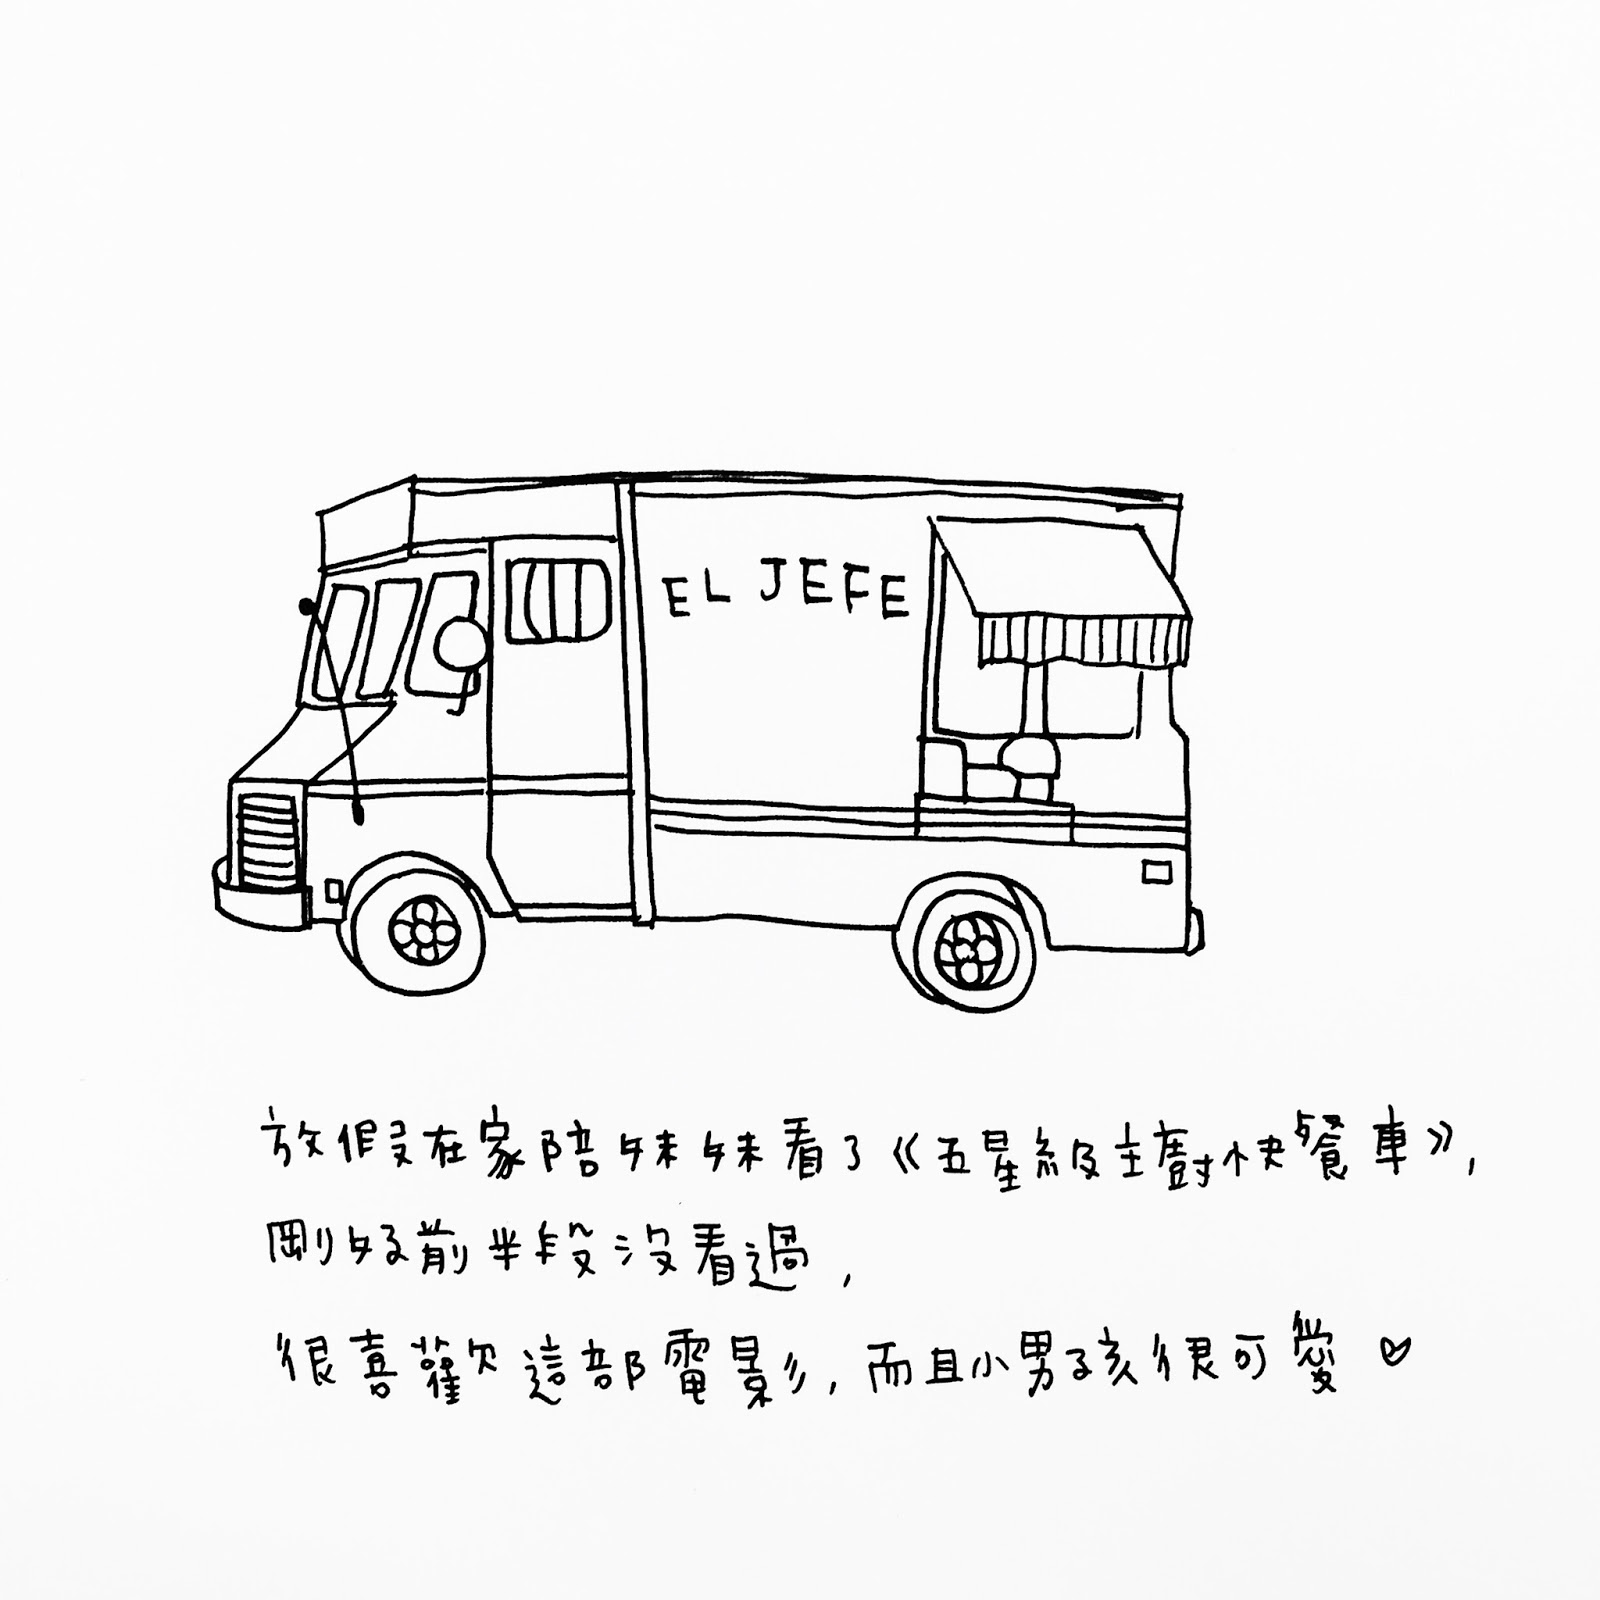 EL JEFE
放假在家陪妹妹看了《五星級主廚快餐車》,
剛好前半段沒看過,
很喜歡這部電影,而且小男孩很可愛♡